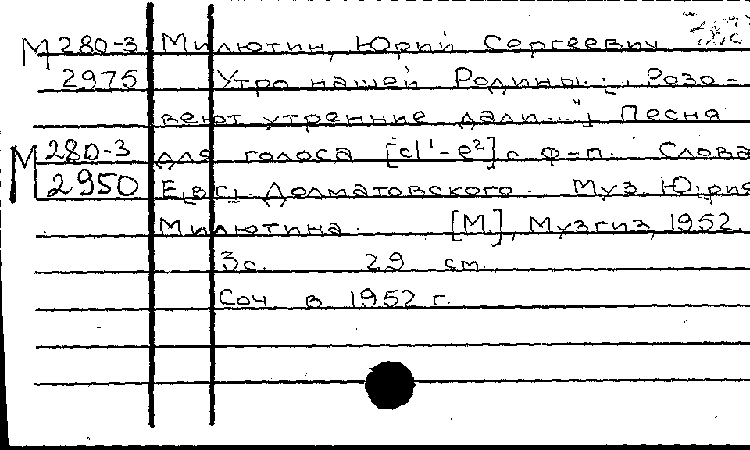 М 280-3 Милютин, Юрий Сергеевич
2975 Утро нашей Родины. "Розо-
веют утренние дали..." Песня
М 280-3 для голоса [cl¹-e²] с ф-п. Слова
2950 Ев. Долматовского. Муз. Юрия
Милютина. [М.], Музгиз, 1952.
3 с. 29 см.
Соч. в 1952 г.